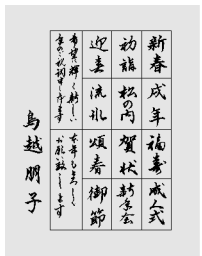 新春 戌年 福寿 成人式
初詣 松の内 賀状 新年会
迎春 流氷 頌春 御節
希望輝く新しい
年のご祝詞申し上げます
本年も宜しく
お願い致します
鳥越朋子